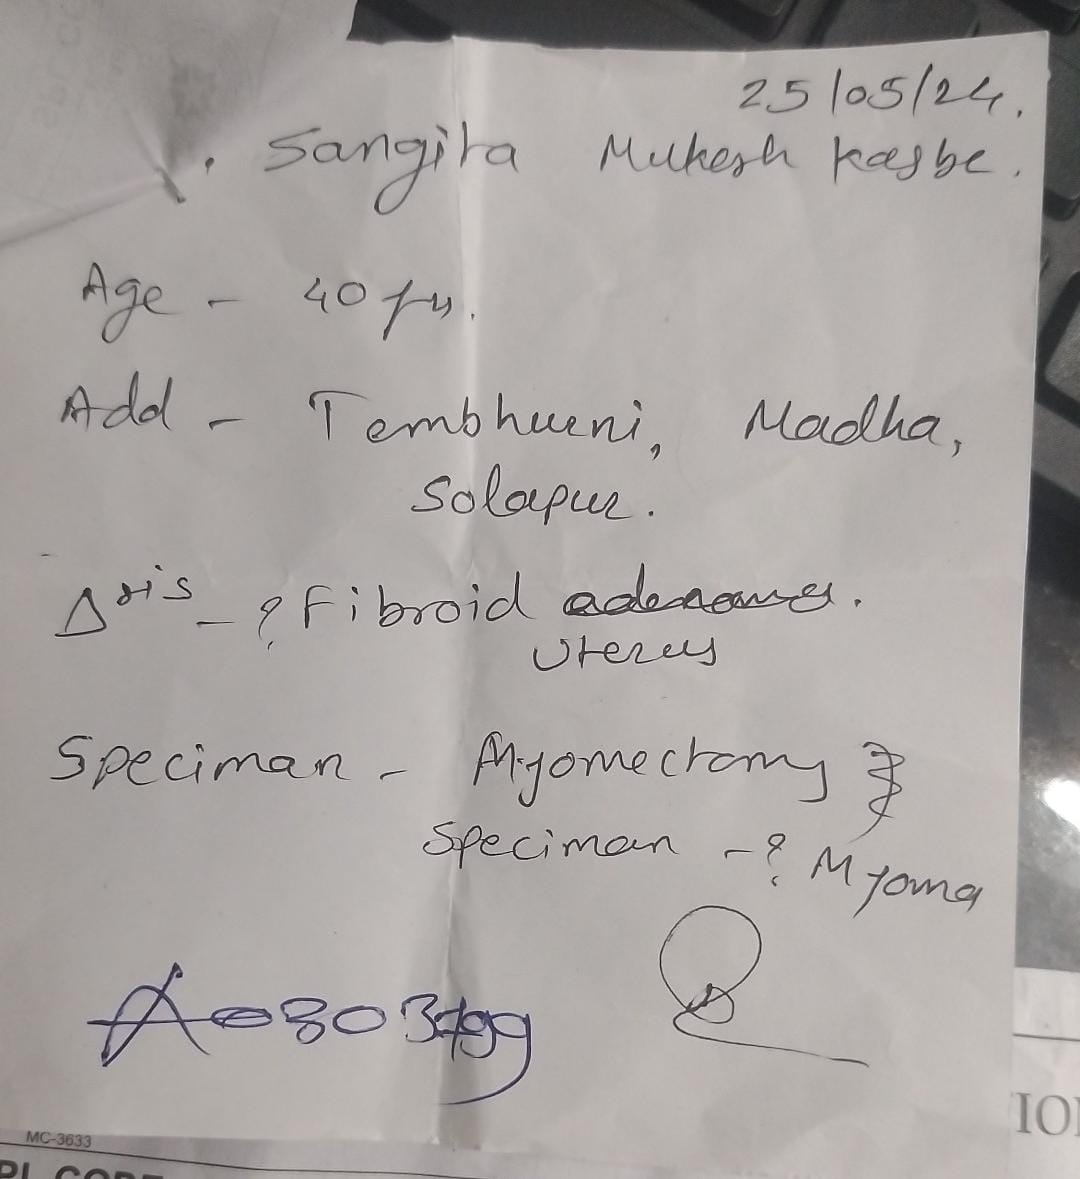 25/05/24.
Sangita Mukesh Kasbe.
Age - 40 yrs.
Add - Tembhurni, Madha,
Solapur.
Δsis - ? Fibroid
Uterus
Speciman - Myomectomy
Speciman - ? Myoma
MC-3633